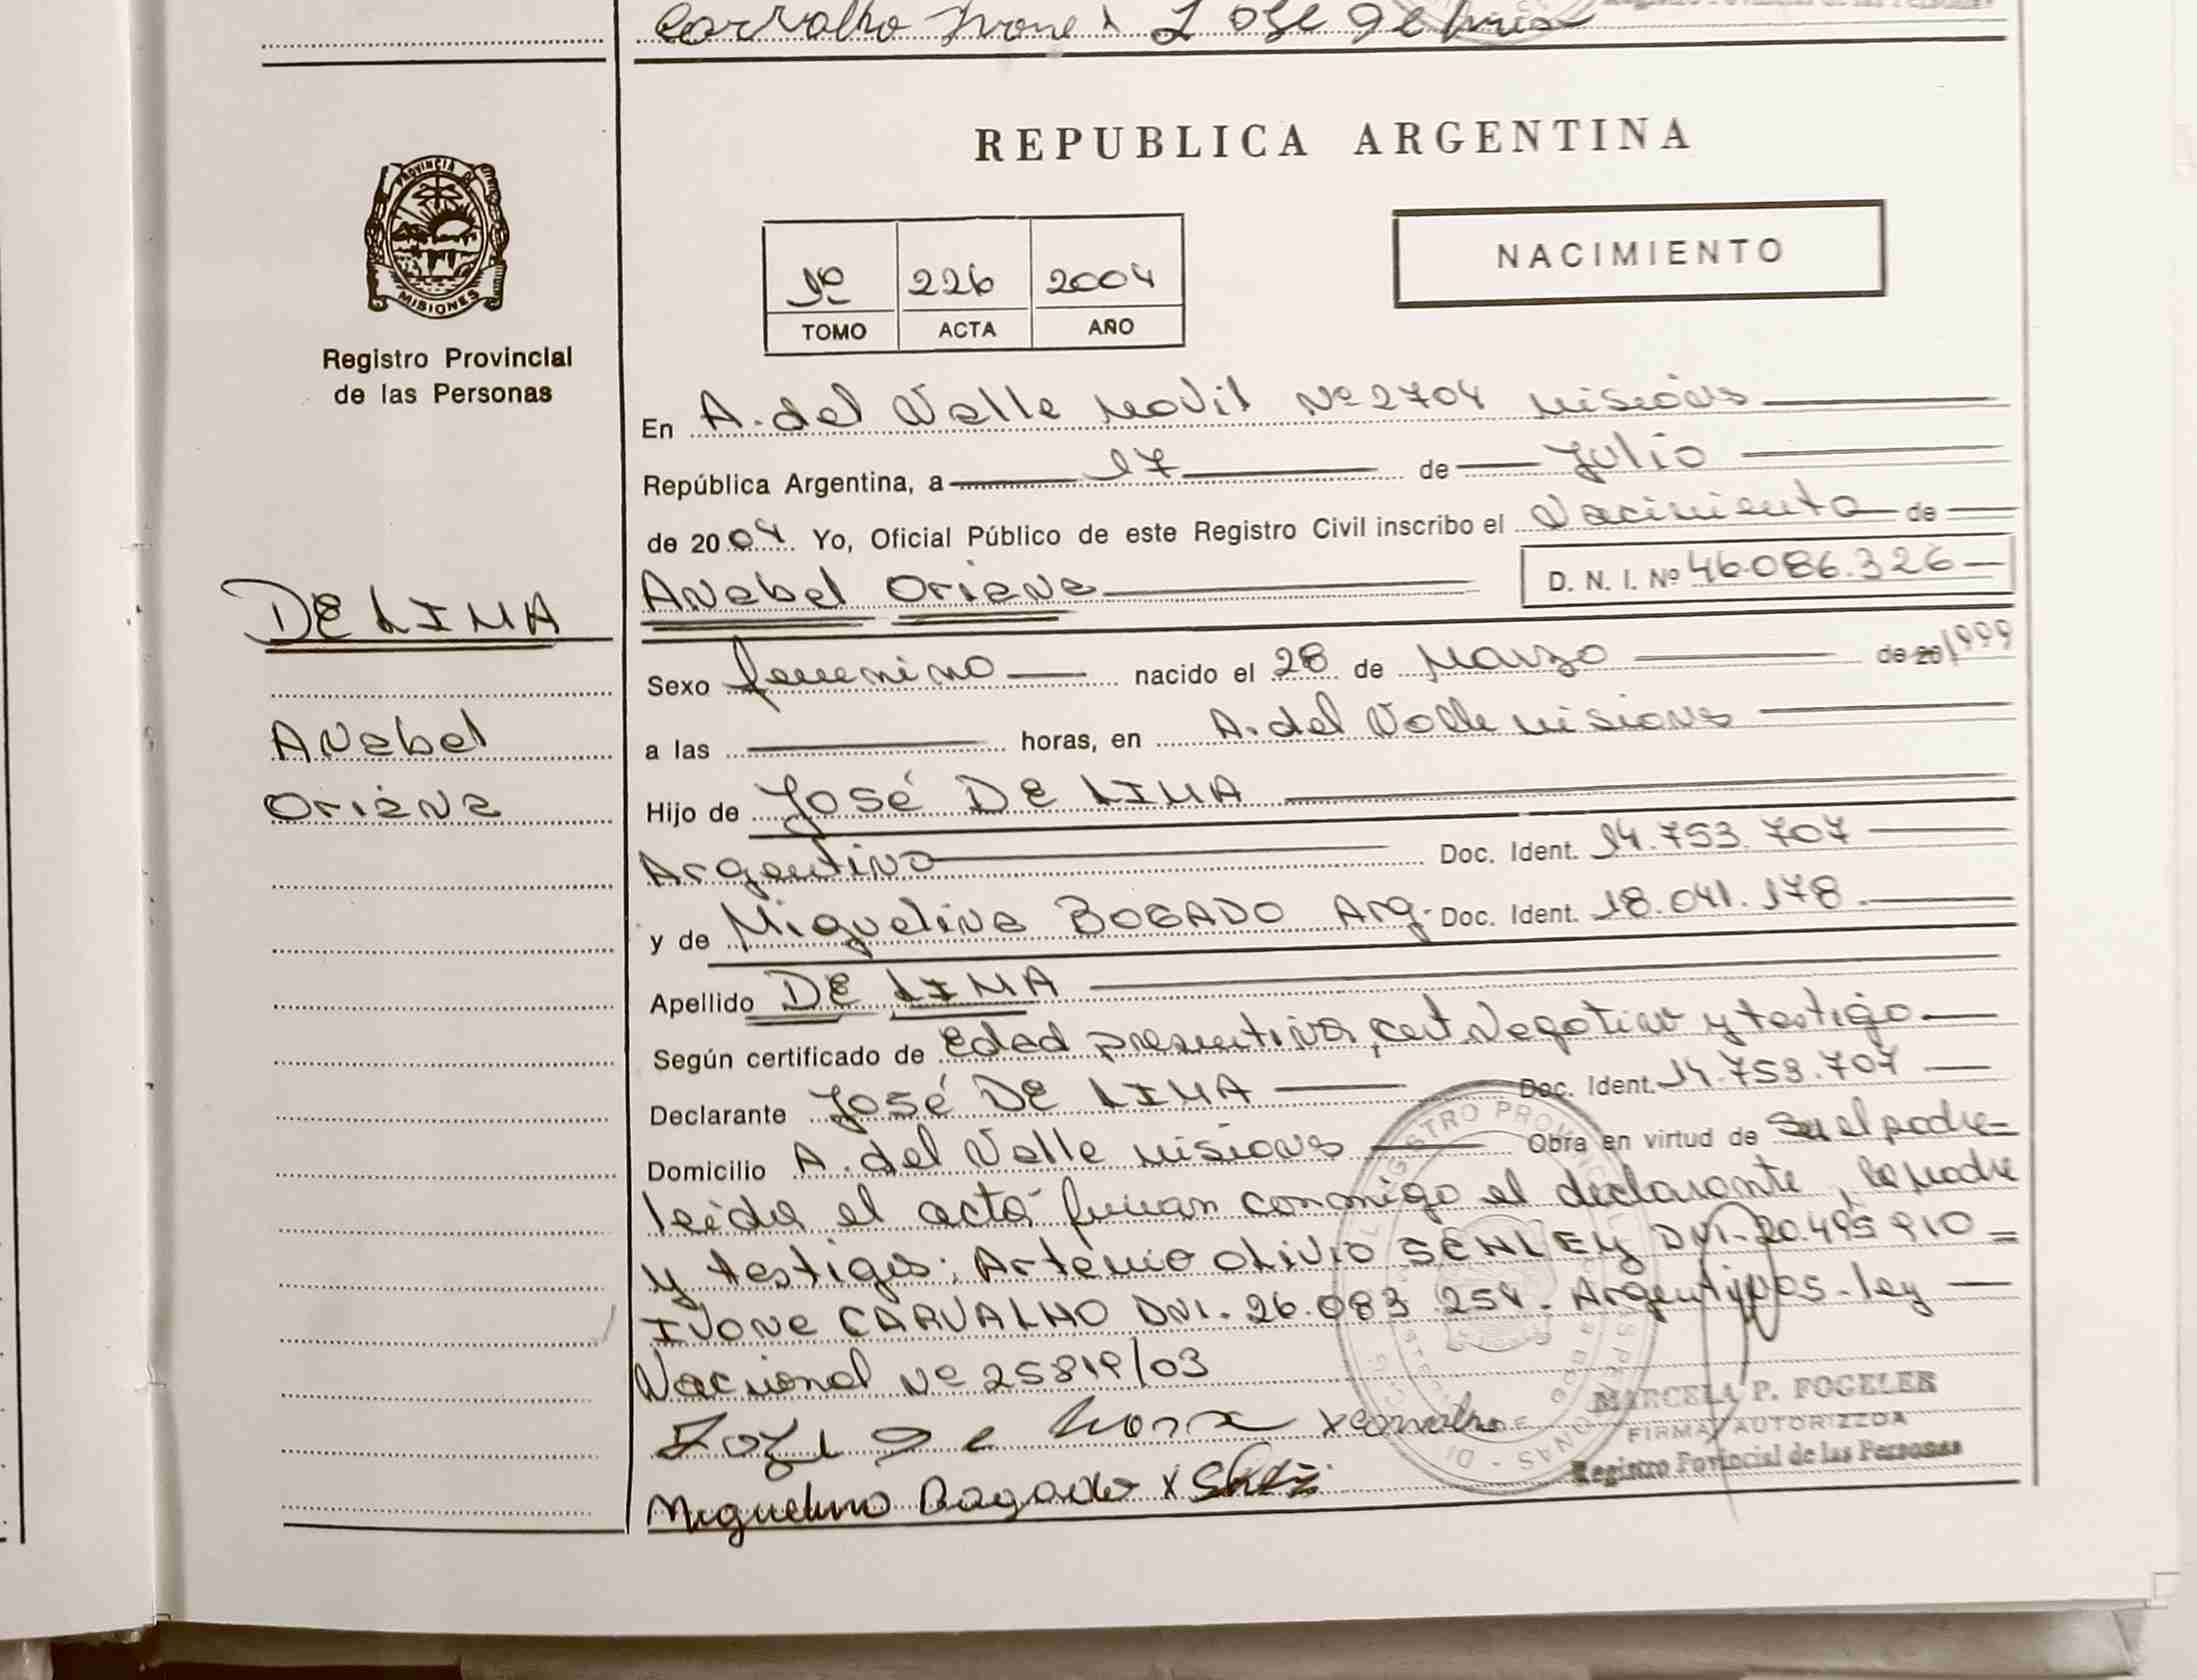 Carvalho Ivone x José de Lima
REPUBLICA ARGENTINA
PROVINCIA DE MISIONES
1º 226 2004
TOMO ACTA AÑO
NACIMIENTO
Registro Provincial
de las Personas
En A. del Valle Movil Nº 2704 Misiones
República Argentina, a 17 de Julio
de 2004 Yo, Oficial Público de este Registro Civil inscribo el Nacimiento de
DE LIMA
Anabel Oriana D. N. I. Nº 46.086.326
Sexo femenino nacido el 28 de Marzo de 20 1999
Anabel
a las horas, en A. del Valle Misiones
Oriana
Hijo de José DE LIMA
Argentino Doc. Ident. 14.753.707
y de Miguelina BOGADO Arg. Doc. Ident. 18.041.178.
Apellido DE LIMA
Según certificado de Edad presuntiva, cert. Negativo y testigo
Declarante José DE LIMA Doc. Ident. 14.753.707
Domicilio A. del Valle Misiones Obra en virtud de Ser el padre
leída el acta firman conmigo el declarante, la madre
y testigos: Artemio Olivio SENLEY DNI. 20.495.910
IVONE CARVALHO DNI. 26.083.254. Argentinos. ley
Nacional Nº 25819/03
José de Lima x Carvalho
MARCELA P. FOGELER
FIRMA AUTORIZZDA
Registro Povincial de las Personas
Miguelina Bogado x